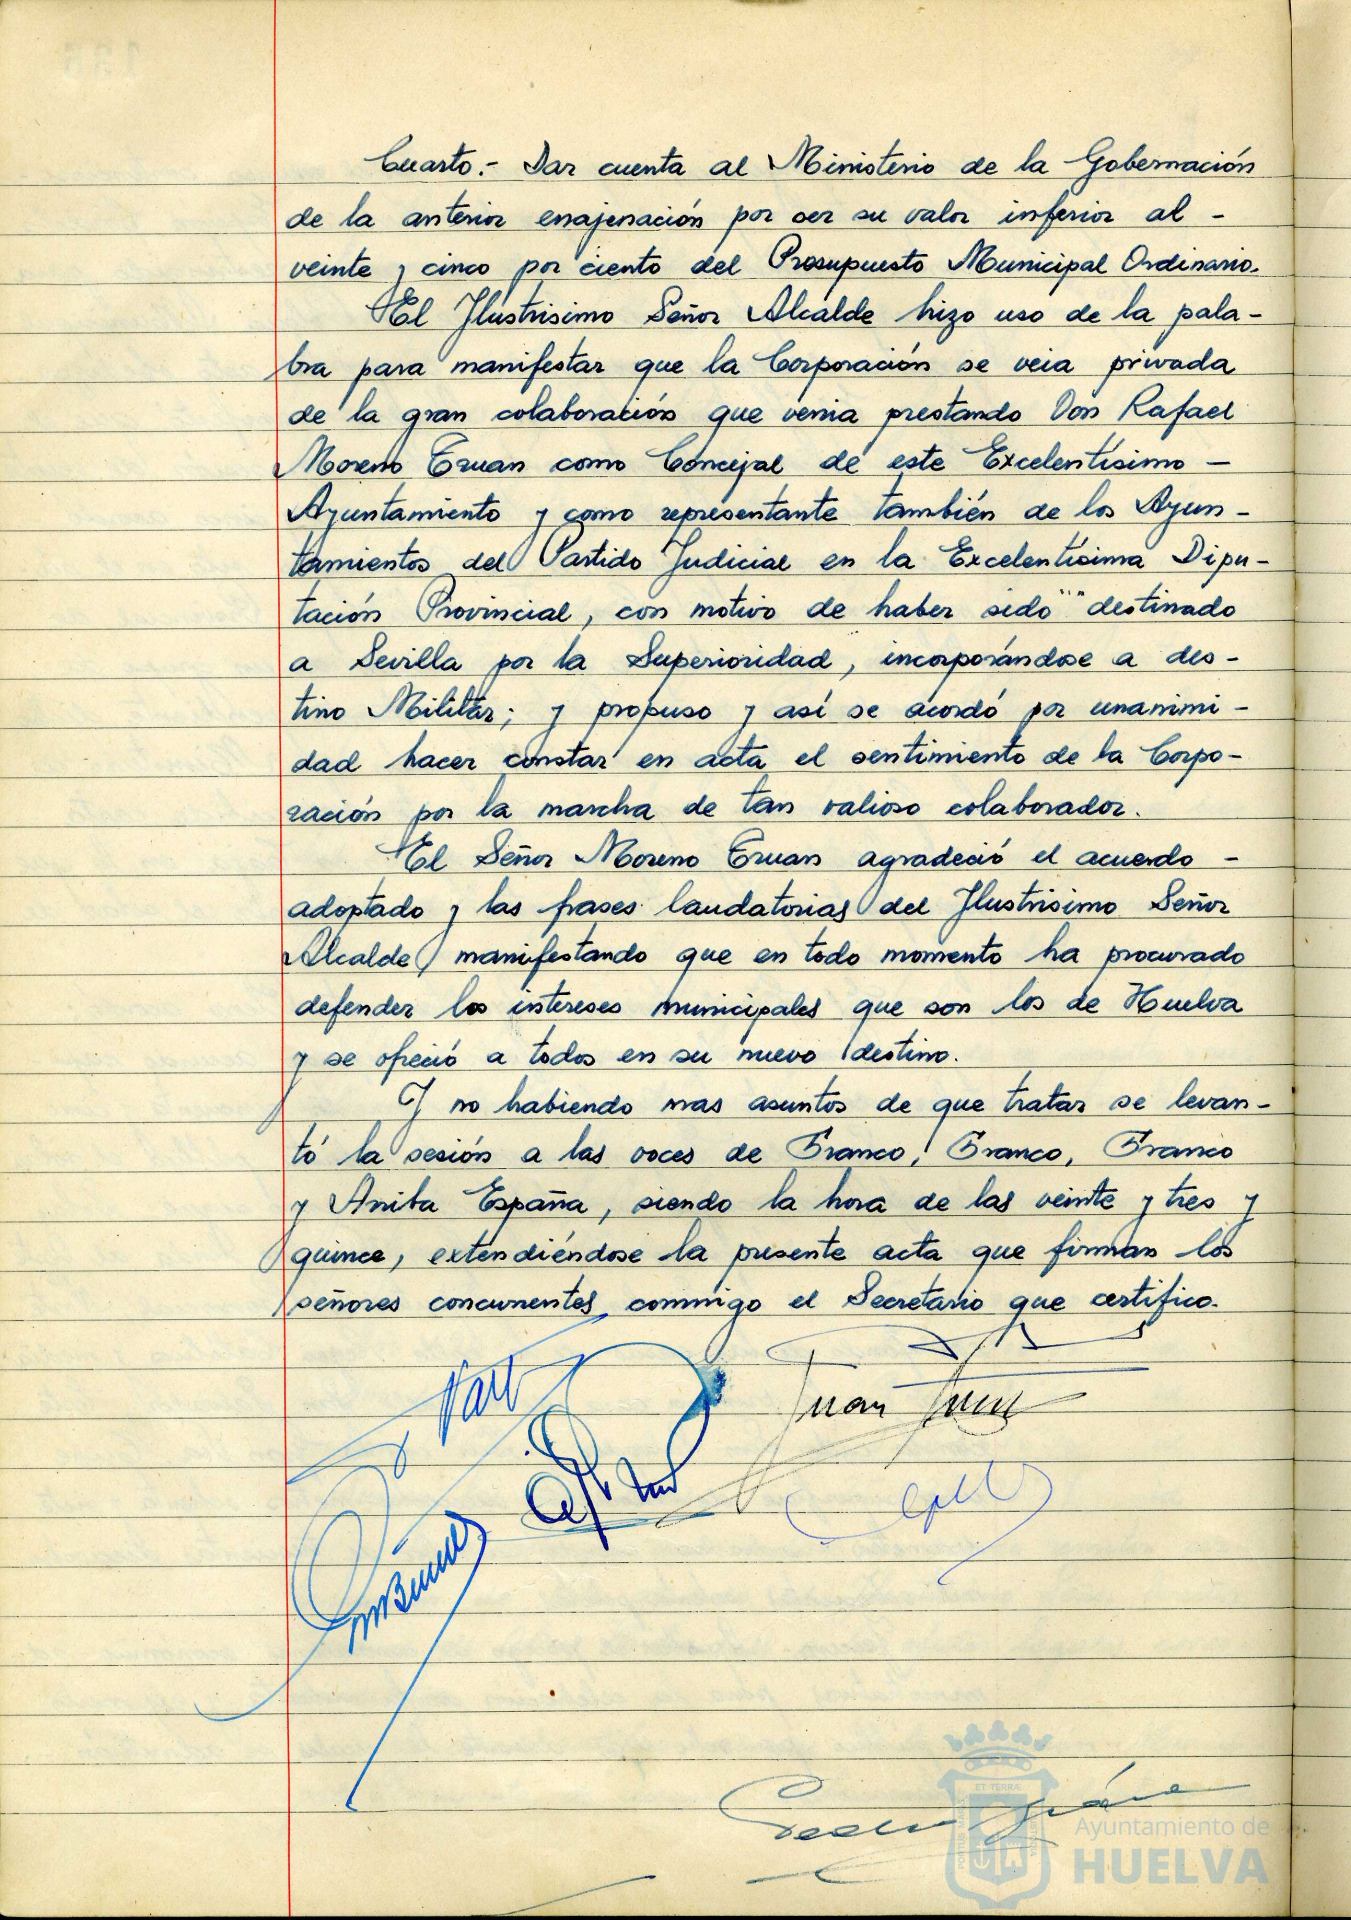 Cuarto.- Dar cuenta al Ministerio de la Gobernación
de la anterior enajenación por ser su valor inferior al -
veinte y cinco por ciento del Presupuesto Municipal Ordinario.
El Ilustrisimo Señor Alcalde hizo uso de la pala-
bra para manifestar que la Corporación se veia privada
de la gran colaboración que venia prestando Don Rafael
Moreno Eruan como Concejal de este Excelentísimo -
Ayuntamiento y como representante también de los Ayun-
tamientos del Partido Judicial en la Excelentísima Dipu-
tación Provincial, con motivo de haber sido "" destinado
a Sevilla por la Superioridad, incorporándose a des-
tino Militar; y propuso y así se acordó por unanimi-
dad hacer constar en acta el sentimiento de la Corpo-
ración por la marcha de tan valioso colaborador.
El Señor Moreno Eruan agradeció el acuerdo -
adoptado y las frases laudatorias del Ilustrisimo Señor
Alcalde, manifestando que en todo momento ha procurado
defender los intereses municipales que son los de Huelva
y se ofreció a todos en su nuevo destino.
Y no habiendo mas asuntos de que tratar se levan-
tó la sesión a las voces de Franco, Franco, Franco
y Arriba España, siendo la hora de las veinte y tres y
quince, extendiéndose la presente acta que firman los
señores concurrentes conmigo el Secretario que certifico.
Juan
Pedro
Ayuntamiento de
HUELVA